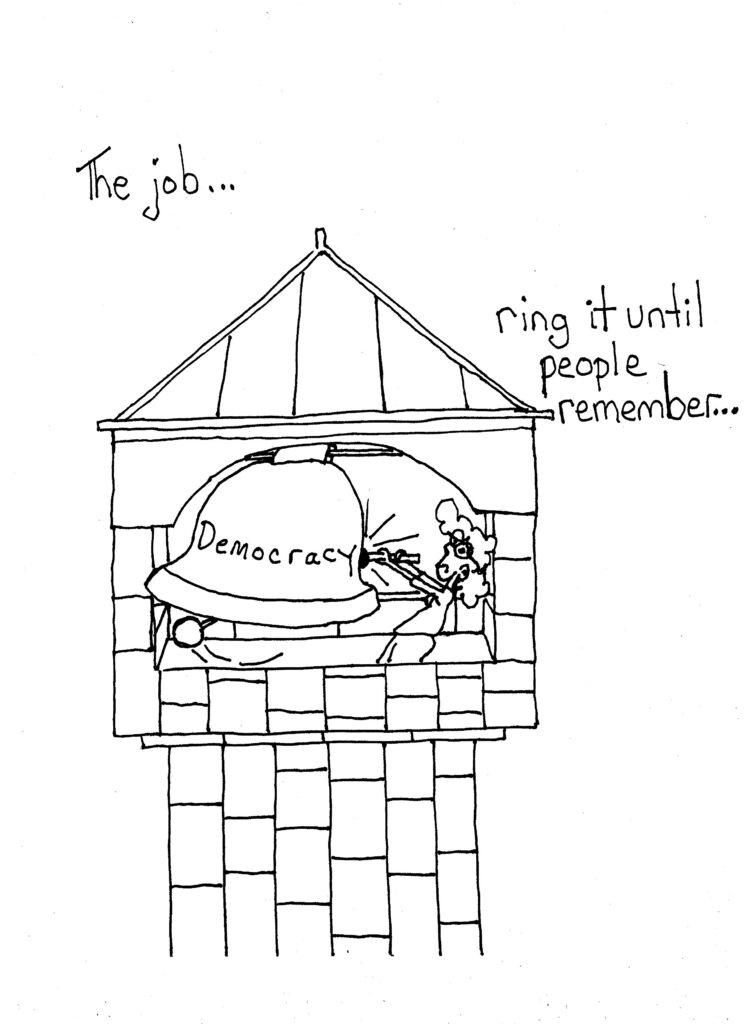 The job...
ring it until
people
remember...
Democracy